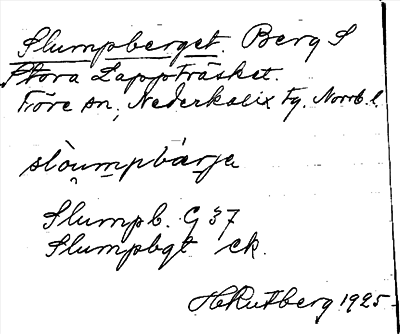 Slumpberget. Berg S
Stora Lappträsket.
Töre sn, Nederkalix Fg. Norrb. l.
slòumpbàrja
Slumpb. G 37
Slumpbgt ek.
H Rutberg 1925.